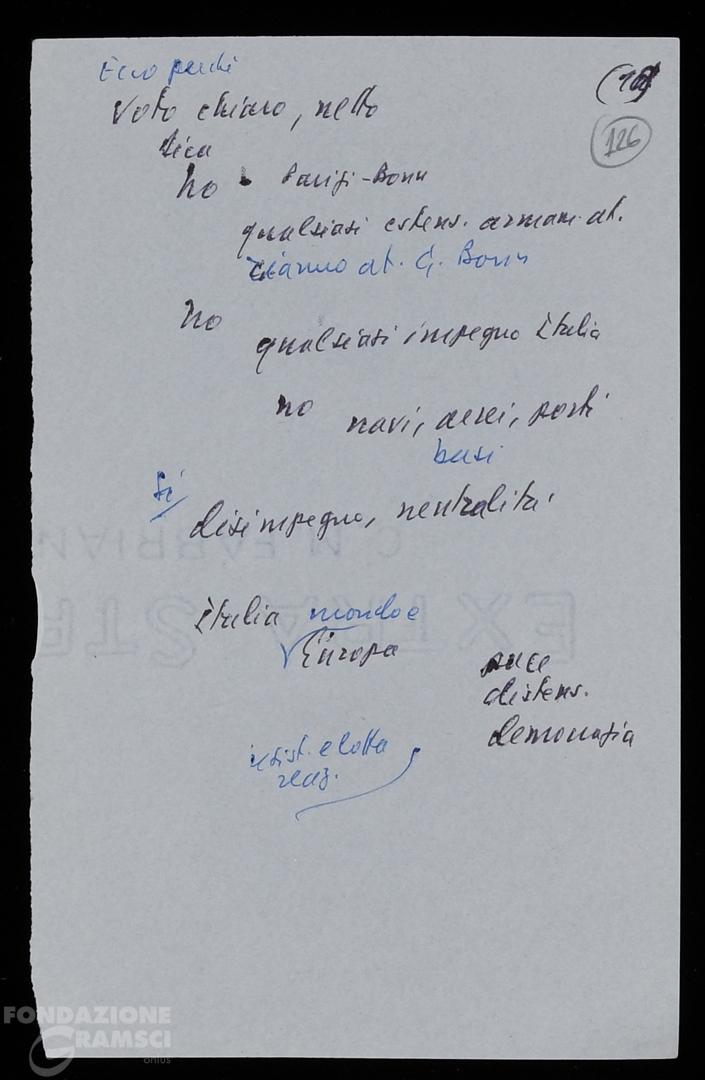 Ecco perché
(16)
Voto chiaro, netto
126
sicu
no Parigi-Bonn
qualsiasi estens. armam. at.
at. G. Bonn
no
qualsiasi impegno Italia
no navi, aerei, porti
basi
Sì
disimpegno, neutralità
C. M. FABRIAN
EXTRA STR
Italia mondo e
Europa
pace
distens.
democrazia
resist. e lotta
reaz.
FONDAZIONE
GRAMSCI
onlus